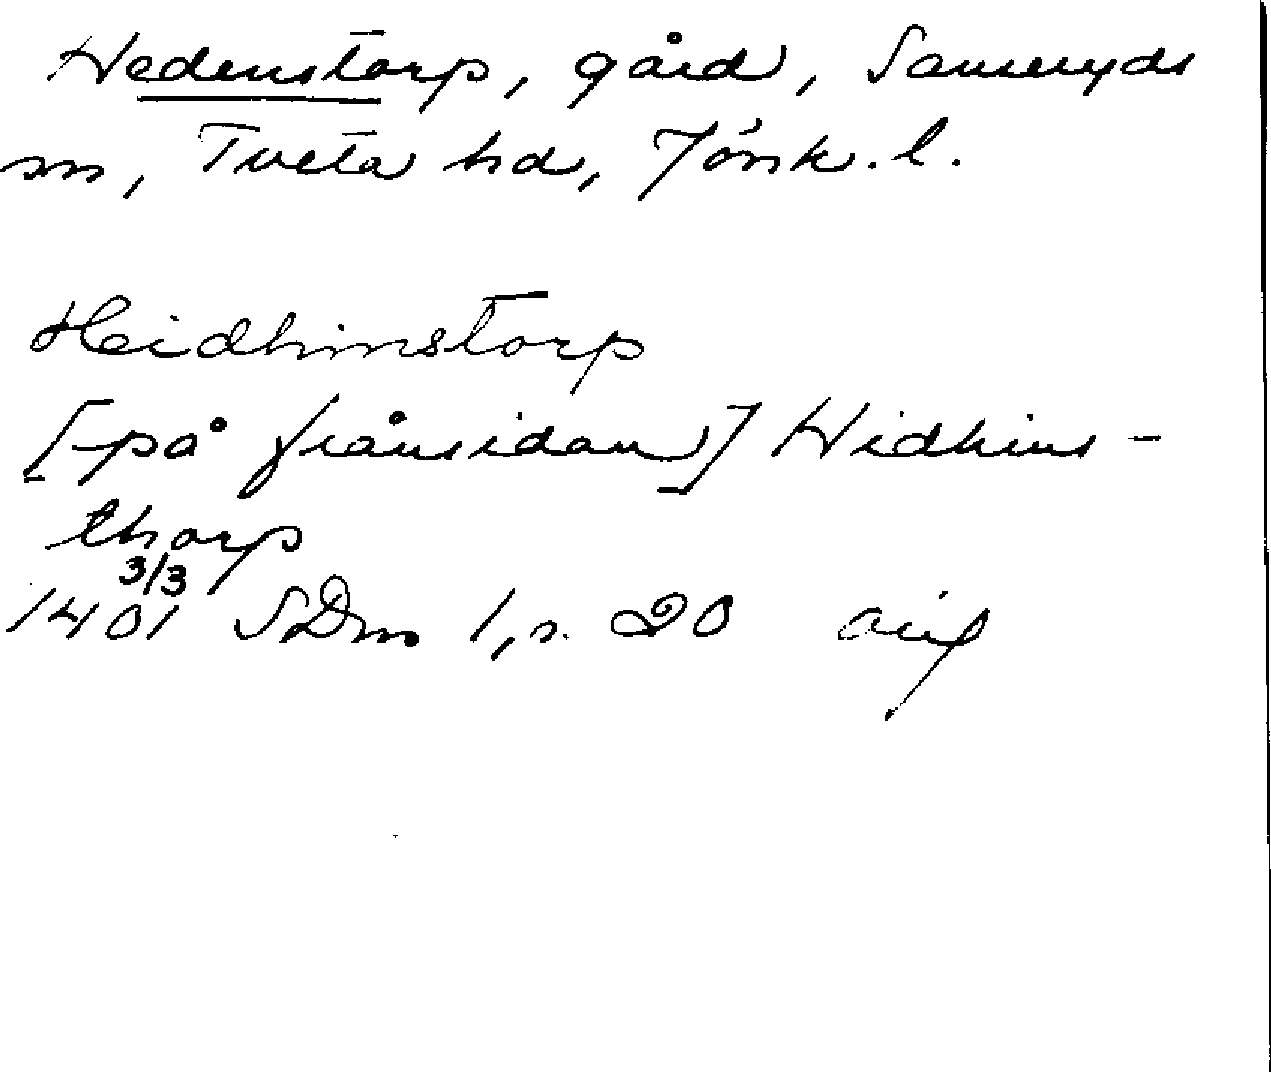 Hedenstorp, gård, Sanseryds
sn, Tveta hd, Jönk. l.
Heidhinstorp
[på frånsidan] Hidhins-
thorp
3/3
1401 SDns 1, s. 20 avs